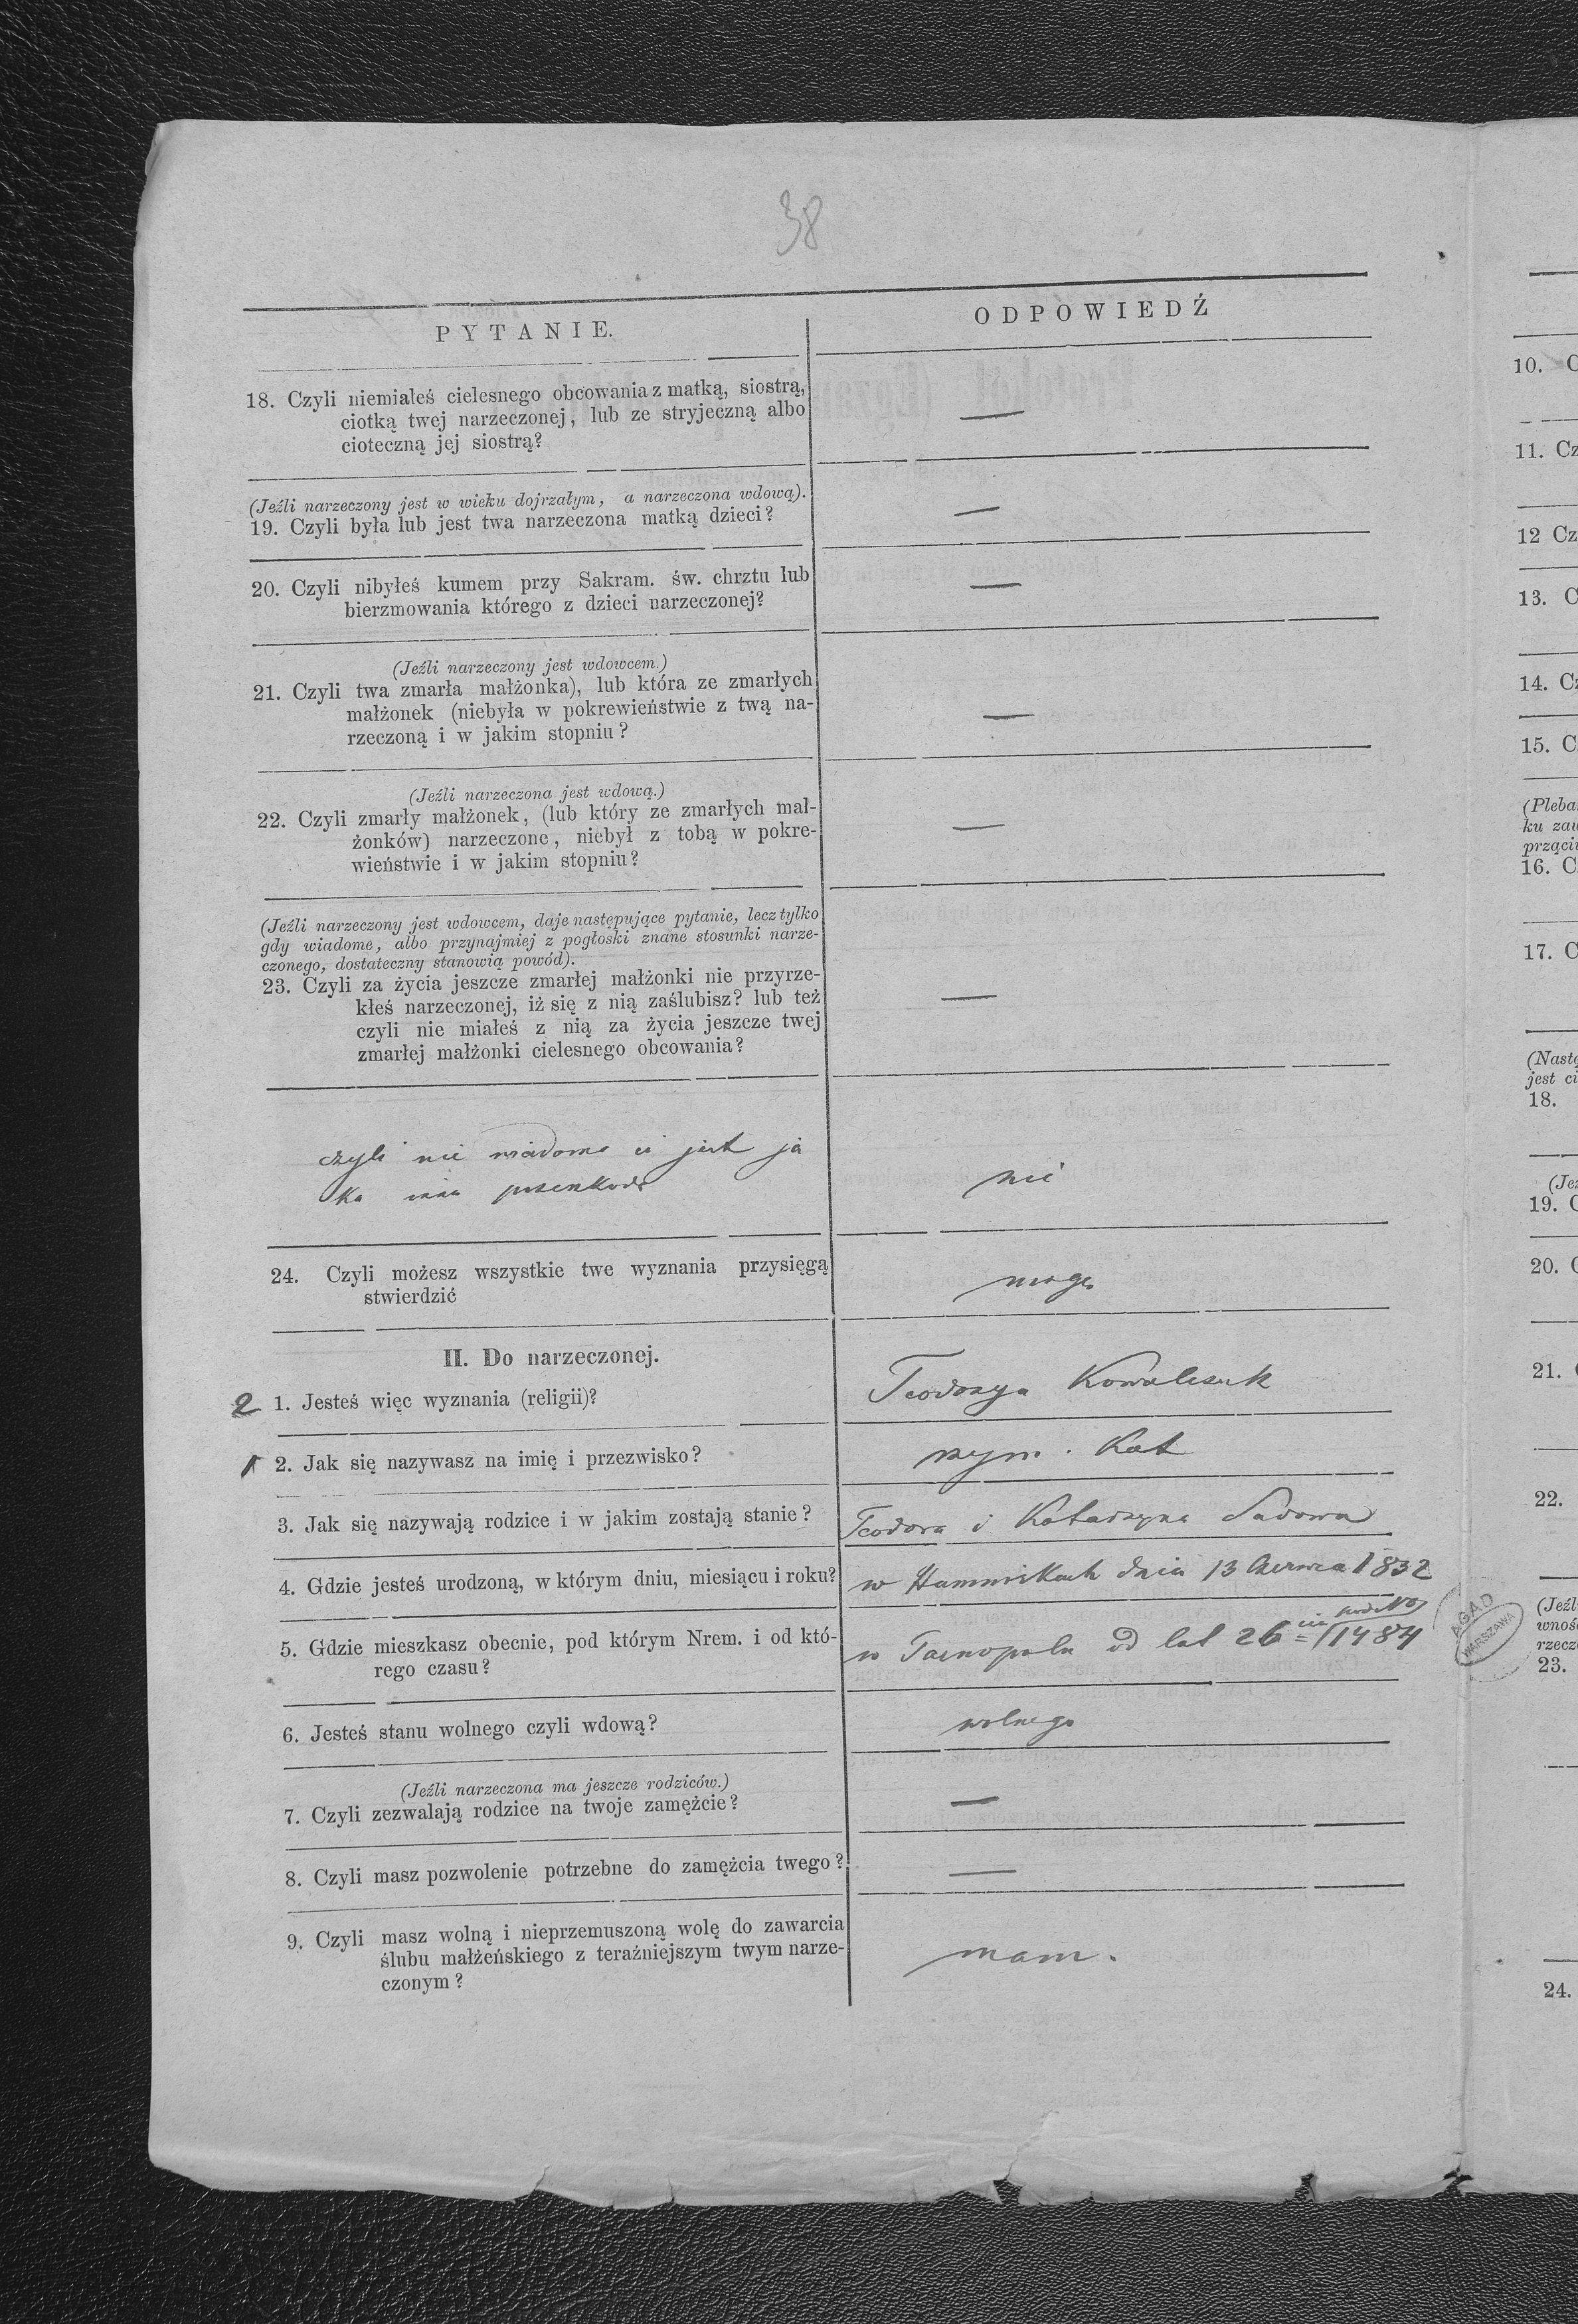 38
PYTANIE.
ODPOWIEDŹ
18. Czyli niemiałeś cielesnego obcowania z matką, siostrą,
ciotką twej narzeczonej, lub ze stryjeczną albo
cioteczną jej siostrą?
—
(Jeźli narzeczony jest w wieku dojrzałym, a narzeczona wdową).
19. Czyli była lub jest twa narzeczona matką dzieci?
—
20. Czyli nibyłeś kumem przy Sakram. św. chrztu lub
bierzmowania którego z dzieci narzeczonej?
—
(Jeźli narzeczony jest wdowcem.)
21. Czyli twa zmarła małżonka), lub która ze zmarłych
małżonek (niebyła w pokrewieństwie z twą na-
rzeczoną i w jakim stopniu?
—
(Jeźli narzeczona jest wdową.)
22. Czyli zmarły małżonek, (lub który ze zmarłych mał-
żonków) narzeczone, niebył z tobą w pokre-
wieństwie i w jakim stopniu?
—
(Jeźli narzeczony jest wdowcem, daje następujące pytanie, lecz tylko
gdy wiadome, albo przynajmiej z pogłoski znane stosunki narze-
czonego, dostateczny stanowią powód).
23. Czyli za życia jeszcze zmarłej małżonki nie przyrze-
kłeś narzeczonej, iż się z nią zaślubisz? lub też
czyli nie miałeś z nią za życia jeszcze twej
zmarłej małżonki cielesnego obcowania?
—
czyli nie wiadomo ci jest ja
ka inna
nie
24. Czyli możesz wszystkie twe wyznania przysięgą
stwierdzić
mogę
II. Do narzeczonej.
2 1. Jesteś więc wyznania (religii)?
Teodozya Kowalczuk
1 2. Jak się nazywasz na imię i przezwisko?
rzym. Kat
3. Jak się nazywają rodzice i w jakim zostają stanie?
Teodora i Katarzyna
4. Gdzie jesteś urodzoną, w którym dniu, miesiącu i roku?
w dnia 13 Czerwca 1832
5. Gdzie mieszkasz obecnie, pod którym Nrem. i od któ-
rego czasu?
w Tarnopolu od lat 26 1484
6. Jesteś stanu wolnego czyli wdową?
wolnego
(Jeźli narzeczona ma jeszcze rodziców.)
7. Czyli zezwalają rodzice na twoje zamężcie?
—
8. Czyli masz pozwolenie potrzebne do zamężcia twego?
—
9. Czyli masz wolną i nieprzemuszoną wolę do zawarcia
ślubu małżeńskiego z teraźniejszym twym narze-
czonym?
mam.
AGAD
WARSZAWA
10. C
11. Cz
12 Cz
13. C
14. Cz
15. C
(Pleba
ku zaw
16. C
17. C
(Nastę
jest ci
18.
(Jeź
19. C
20. C
21.
22.
(Jeźl
wnoś
rzecz
23.
24.